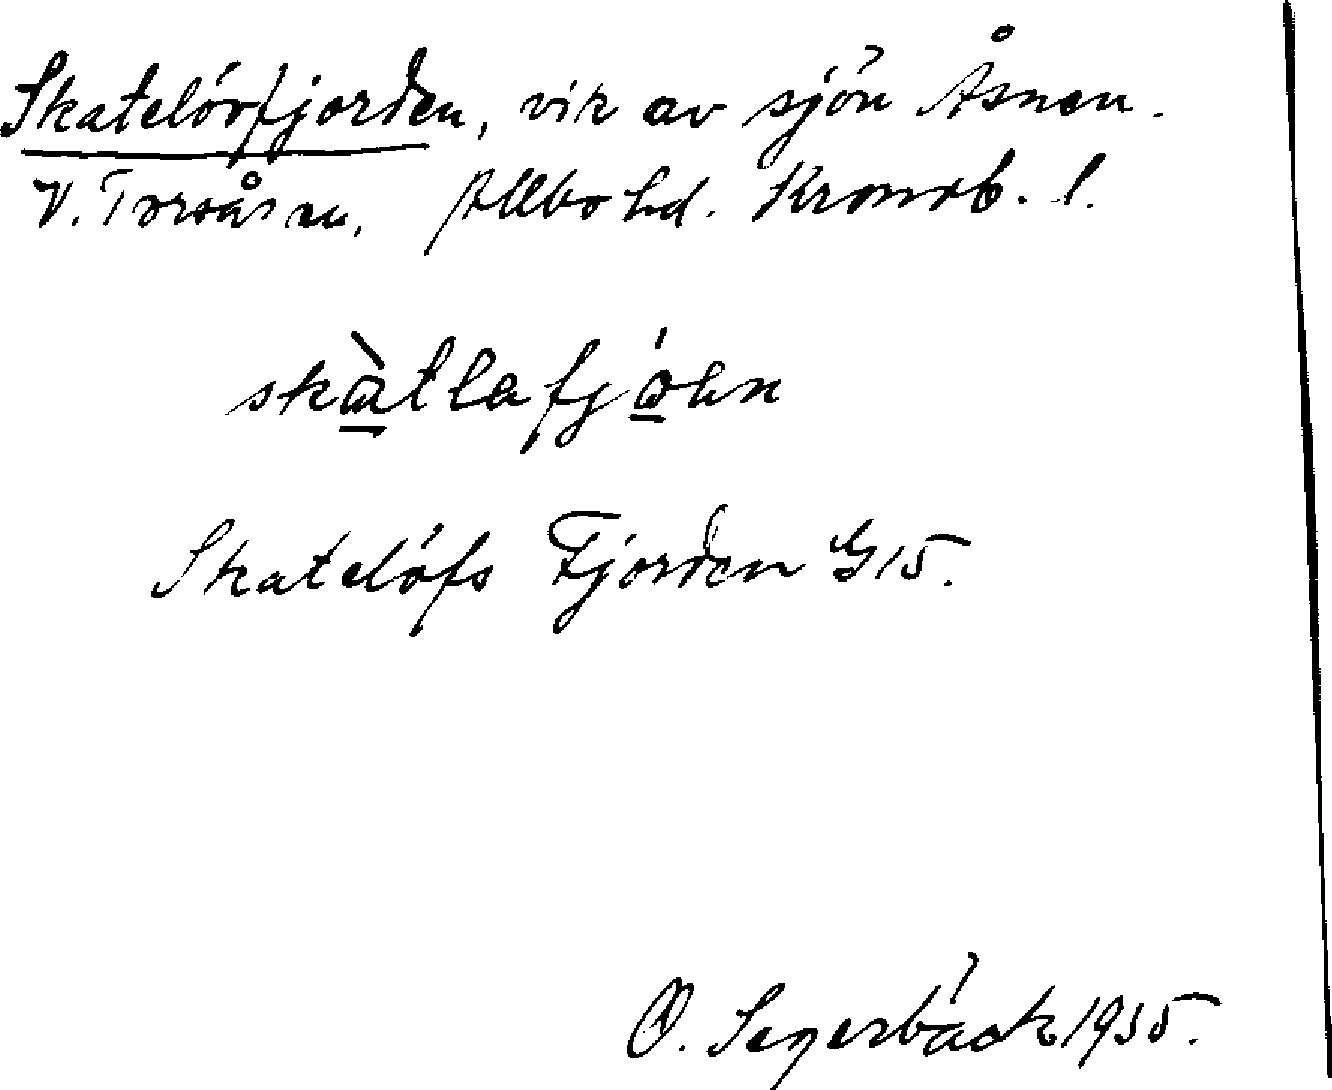 Skatelövfjorden, vik av sjön Åsnen.
V. Torsås sn, Allbo hd. Kronob. l.
skàtlafjóhn
Skatelöfs Fjorden G15.
O. Segerbäck 1935.